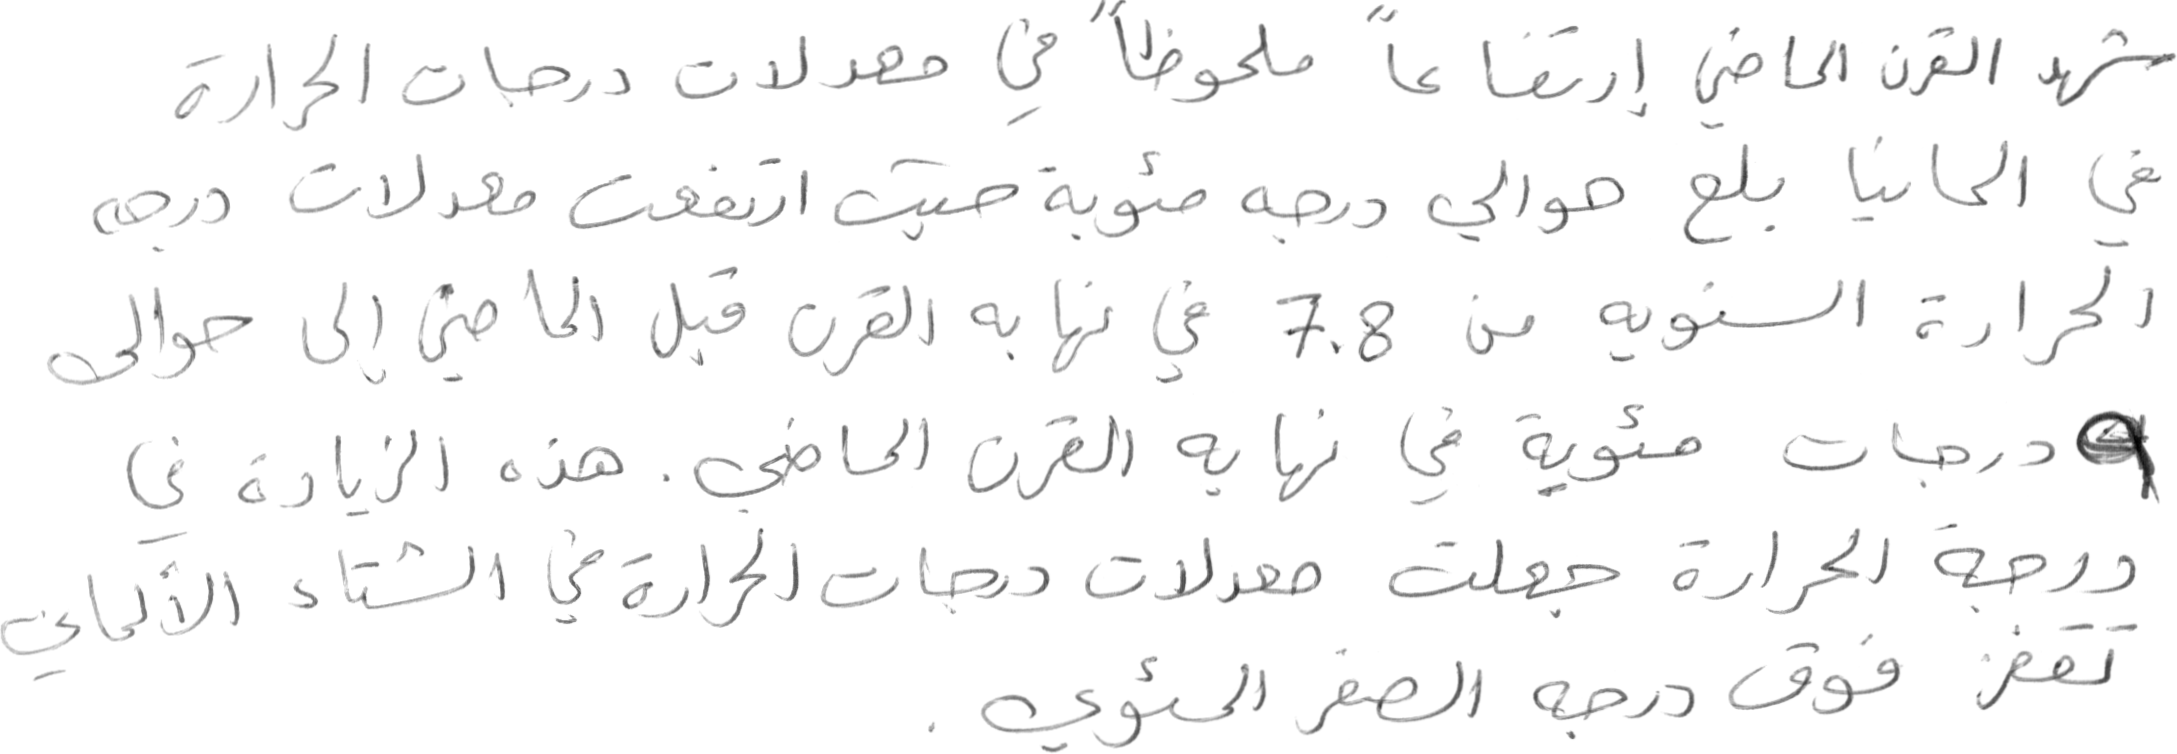 شهد القرن الماضي إرتفاعاً ملحوظاً في معدلات درجات الحرارة
في المانيا بلغ حوالي درجه مئوية حيث ارتفعت معدلات درجه
الحرارة السنويه من 7.8 في نهايه القرن قبل الماضي إلى حوالى
9 درجات مئوية في نهايه القرن الماضي. هذه الزيادة في
درجة الحرارة جعلت معدلات درجات الحرارة في الشتاء الألماني
تقفز فوق درجه الصفر المئوي.